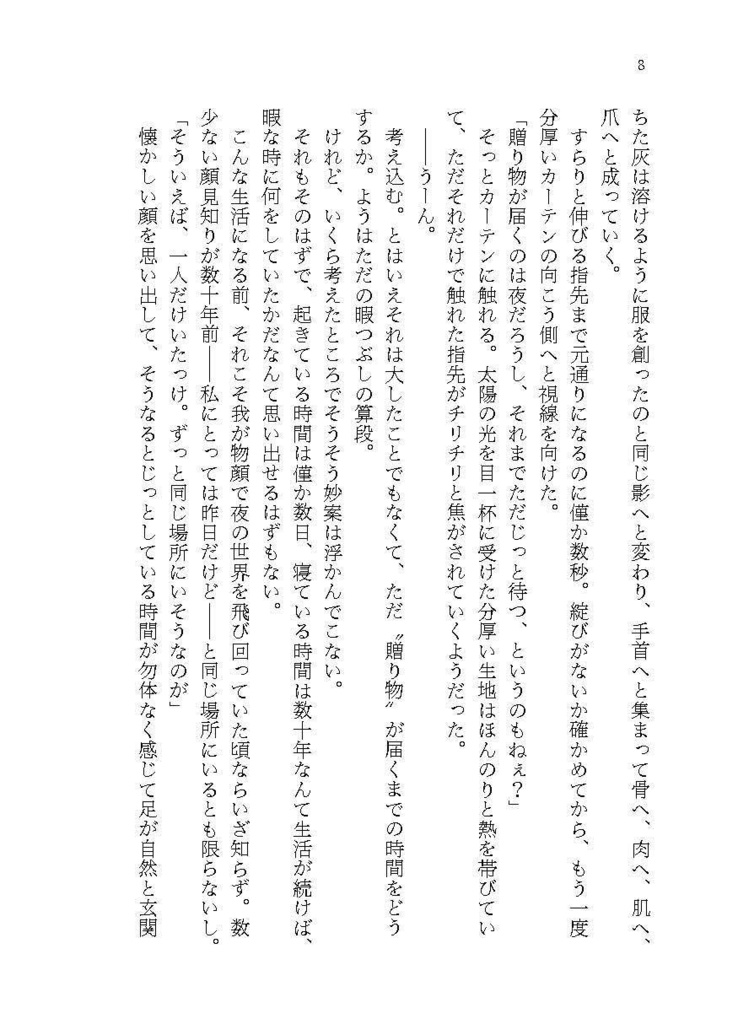 8
ちた灰は溶けるように服を創ったのと同じ影へと変わり、手首へと集まって骨へ、肉へ、肌へ、
爪へと成っていく。
すらりと伸びる指先まで元通りになるのに僅か数秒。綻びがないか確かめてから、もう一度
分厚いカーテンの向こう側へと視線を向けた。
「贈り物が届くのは夜だろうし、それまでただじっと待つ、というのもねぇ？」
そっとカーテンに触れる。太陽の光を目一杯に受けた分厚い生地はほんのりと熱を帯びてい
て、ただそれだけで触れた指先がチリチリと焦がされていくようだった。
――うーん。
考え込む。とはいえそれは大したことでもなくて、ただ〝贈り物〟が届くまでの時間をどう
するか。ようはただの暇つぶしの算段。
けれど、いくら考えたところでそうそう妙案は浮かんでこない。
それもそのはずで、起きている時間は僅か数日、寝ている時間は数十年なんて生活が続けば、
暇な時に何をしていたかだなんて思い出せるはずもない。
こんな生活になる前、それこそ我が物顔で夜の世界を飛び回っていた頃ならいざ知らず。数
少ない顔見知りが数十年前――私にとっては昨日だけど――と同じ場所にいるとも限らないし。
「そういえば、一人だけいたっけ。ずっと同じ場所にいそうなのが」
懐かしい顔を思い出して、そうなるとじっとしている時間が勿体なく感じて足が自然と玄関